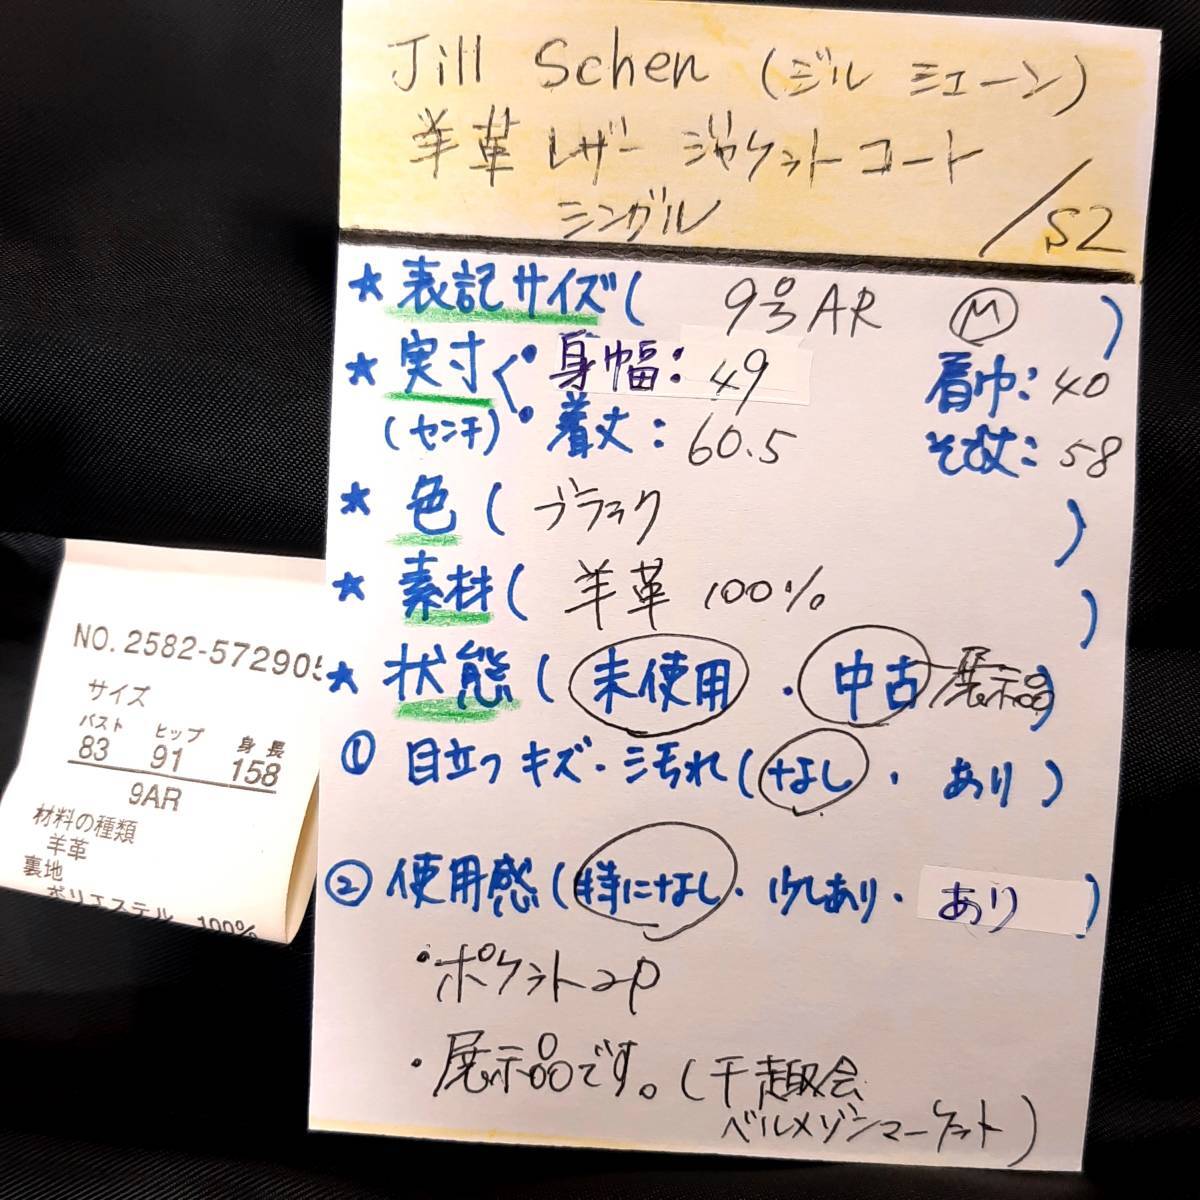 Jill Schen (ジル ミェーン)
羊革 レザー ジャケットコート
シングル /S2
★ 表記サイズ( 9号AR Ⓜ )
★ 実寸 • 身幅: 49 肩巾: 40
(センチ) • 着丈: 60.5 そで丈: 58
★ 色 ( ブラック )
★ 素材( 羊革 100% )
★ 状態 ( 未使用 ・ 中古 展示品)
① 目立つ キズ・汚れ (なし ・ あり )
② 使用感 (特になし ・ 少しあり ・ あり )
・ポケット2P
・展示品です。(千趣会
ベルメゾンマーケット)
NO. 2582-572905
サイズ
バスト ヒップ 身長
83 91 158
9AR
材料の種類
羊革
裏地
ポリエステル 100%